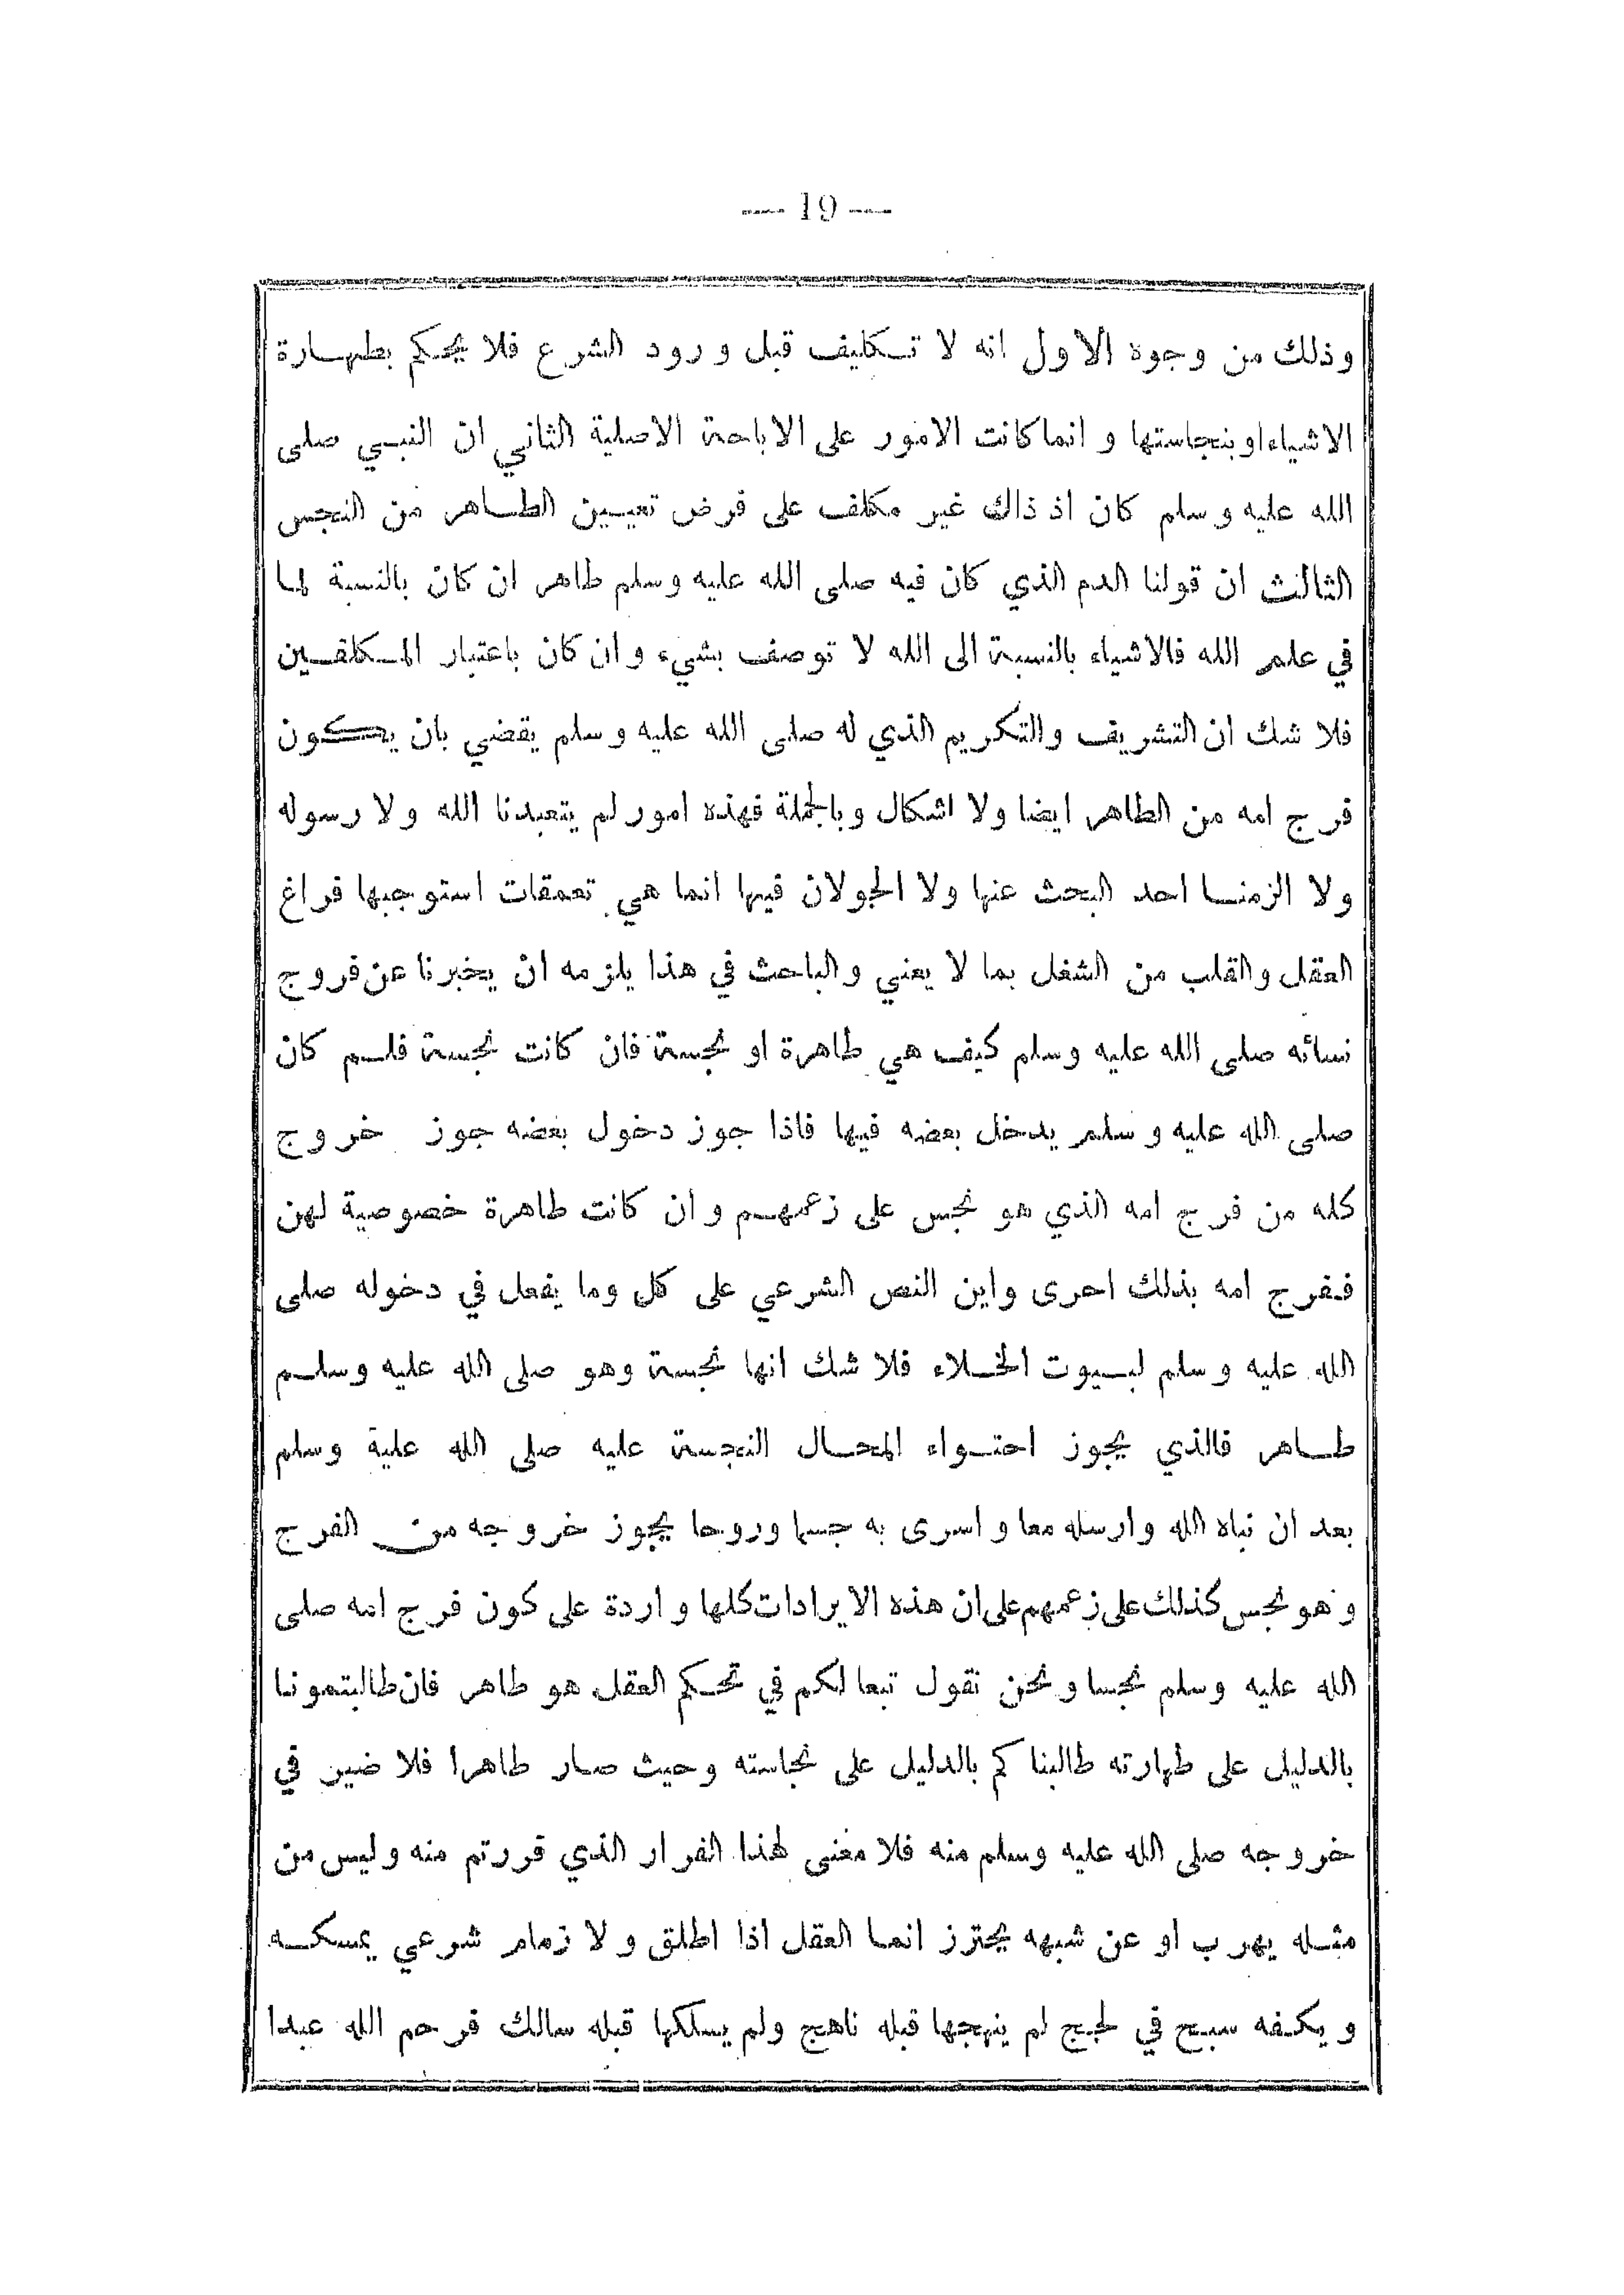 — 19 —
وذلك من وجوه الاول انه لا تكليف قبل ورود الشرع فلا يحكم بطهارة
الاشياء او بنجاستها و انما كانت الامور على الاباحة الاصلية الثاني ان النبي صلى
الله عليه وسلم كان اذ ذاك غير مكلف على فرض تعيين الطاهر من النجس
الثالث ان قولنا الدم الذي كان فيه صلى الله عليه وسلم طاهر ان كان بالنسبة لما
في علم الله فالاشياء بالنسبة الى الله لا توصف بشيء وان كان باعتبار المكلفين
فلا شك ان التشريف والتكريم الذي له صلى الله عليه وسلم يقضي بان يكون
فرج امه من الطاهر ايضا ولا اشكال وبالجملة فهذه امور لم يتعبدنا الله ولا رسوله
ولا الزمنا احد البحث عنها ولا الجولان فيها انما هي تعمقات استوجبها فراغ
العقل والقلب من الشغل بما لا يعني والباحث في هذا يلزمه ان يخبرنا عن فروج
نسائه صلى الله عليه وسلم كيف هي طاهرة او نجسة فان كانت نجسة فلم كان
صلى الله عليه وسلم يدخل بعضه فيها فاذا جوز دخول بعضه جوز خروج
كله من فرج امه الذي هو نجس على زعمهم وان كانت طاهرة خصوصية لهن
ففرج امه بذلك احرى واين النص الشرعي على كل وما يفعل في دخوله صلى
الله عليه وسلم لبيوت الخلاء فلا شك انها نجسة وهو صلى الله عليه وسلم
طاهر فالذي يجوز احتواء المحال النجسة عليه صلى الله علية وسلم
بعد ان نباه الله وارسله معا و اسرى به جسما وروحا يجوز خروجه من الفرج
وهو نجس كذلك على زعمهم على ان هذه الايرادات كلها واردة على كون فرج امه صلى
الله عليه وسلم نجسا ونحن نقول تبعا لكم في تحكم العقل هو طاهر فان طالبتمونا
بالدليل على طهارته طالبناكم بالدليل على نجاسته وحيث صار طاهرا فلا ضير في
خروجه صلى الله عليه وسلم منه فلا معنى لهذا الفرار الذي فررتم منه وليس من
مثله يهرب او عن شبهه يحترز انما العقل اذا اطلق ولا زمام شرعي يمسكه
ويكفه سبح في لجج لم ينهجها قبله ناهج ولم يسلكها قبله سالك فرحم الله عبدا